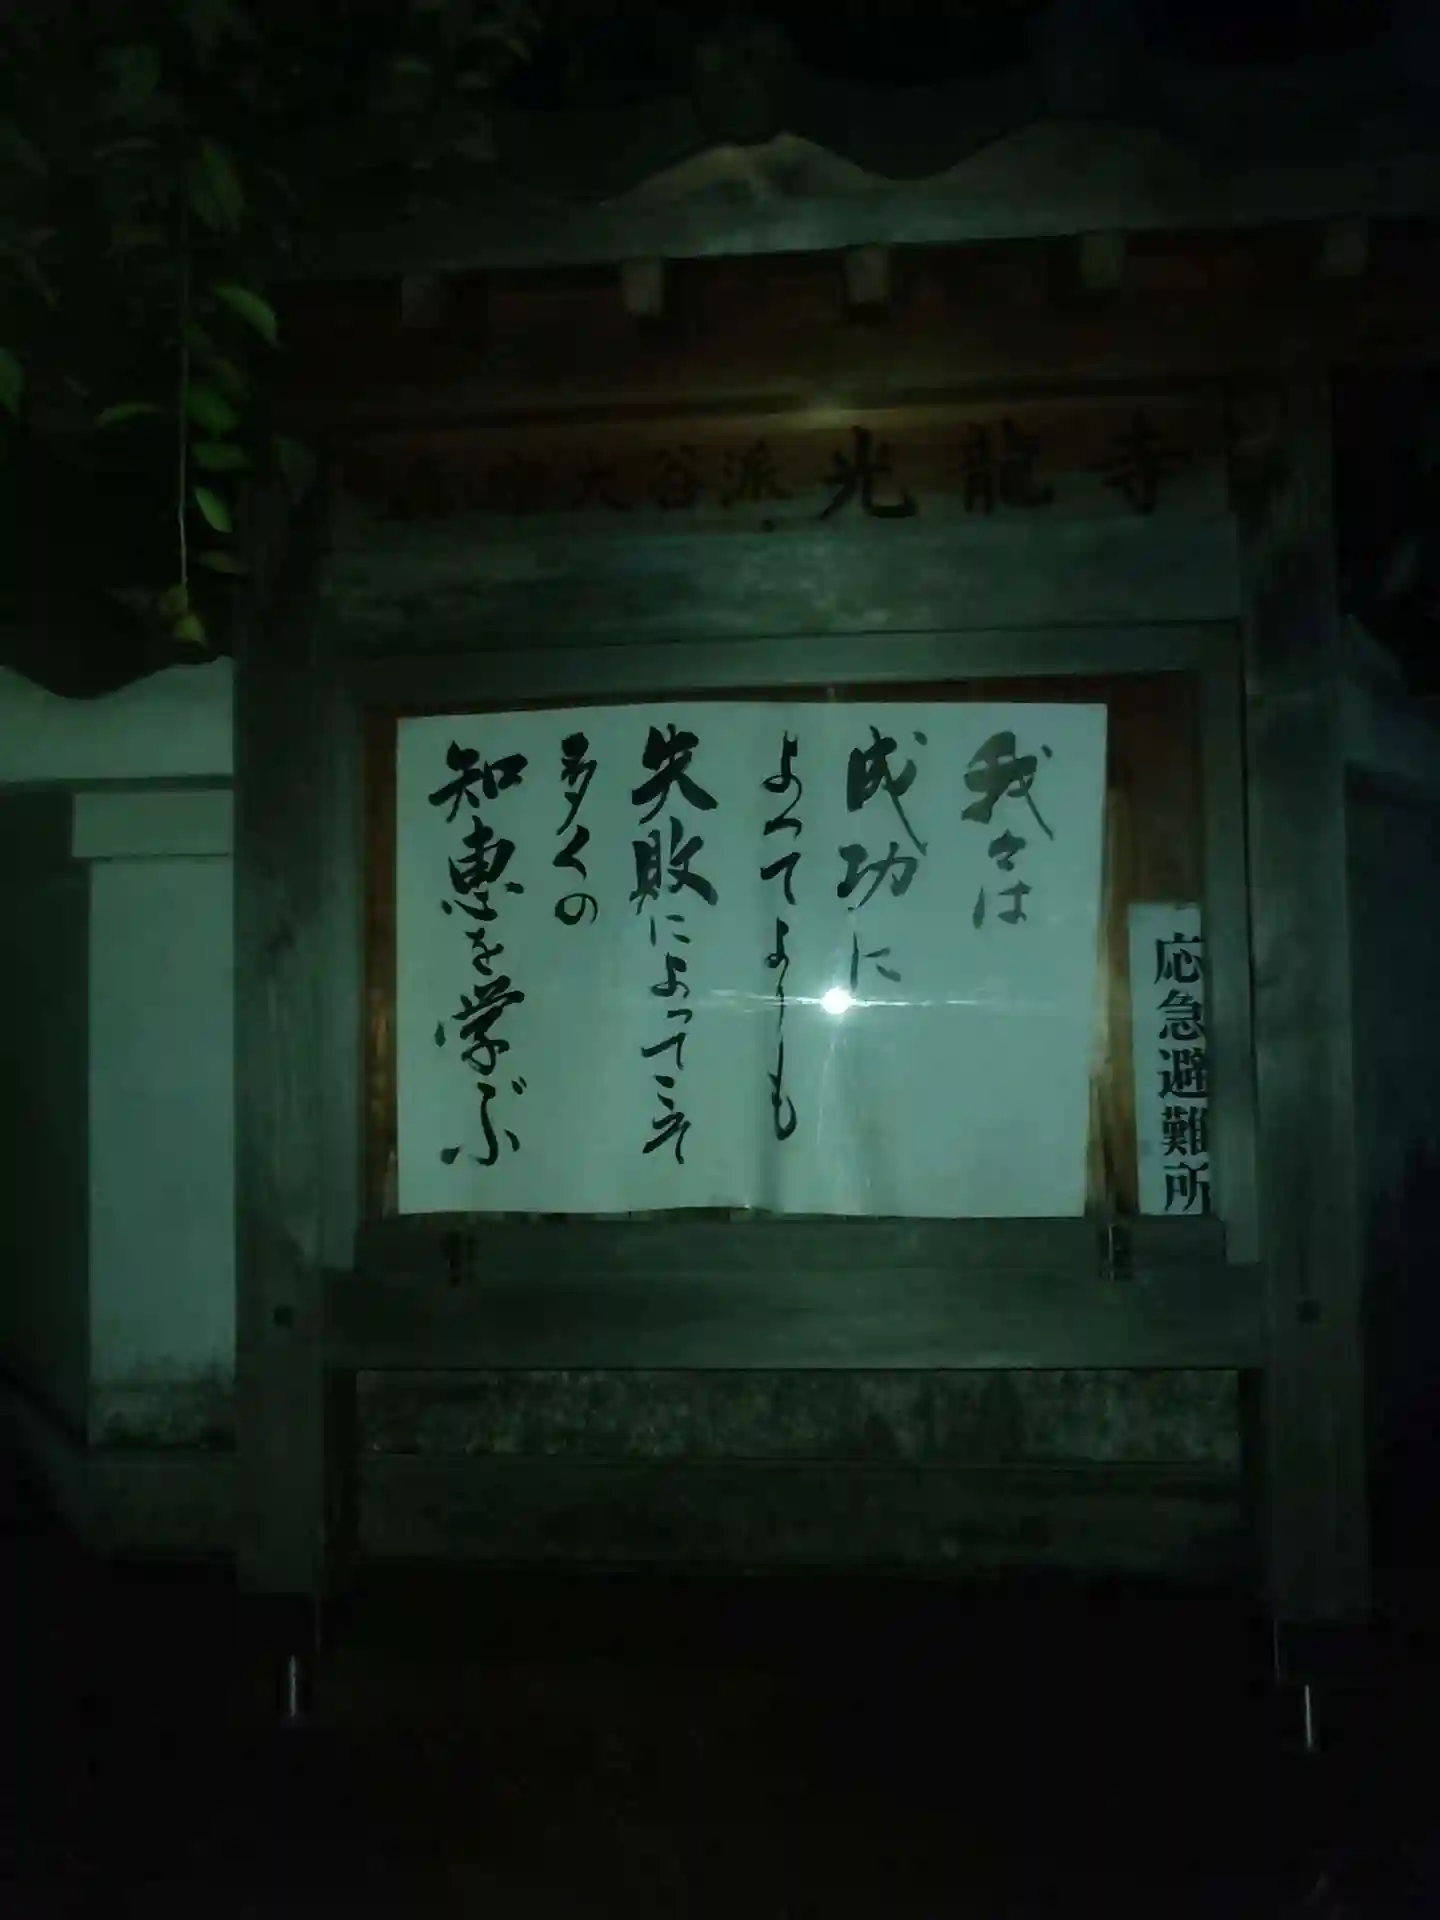 大谷派 光龍寺
我々は
成功に
よってよりも
失敗によってこそ
多くの
知恵を学ぶ
応急避難所